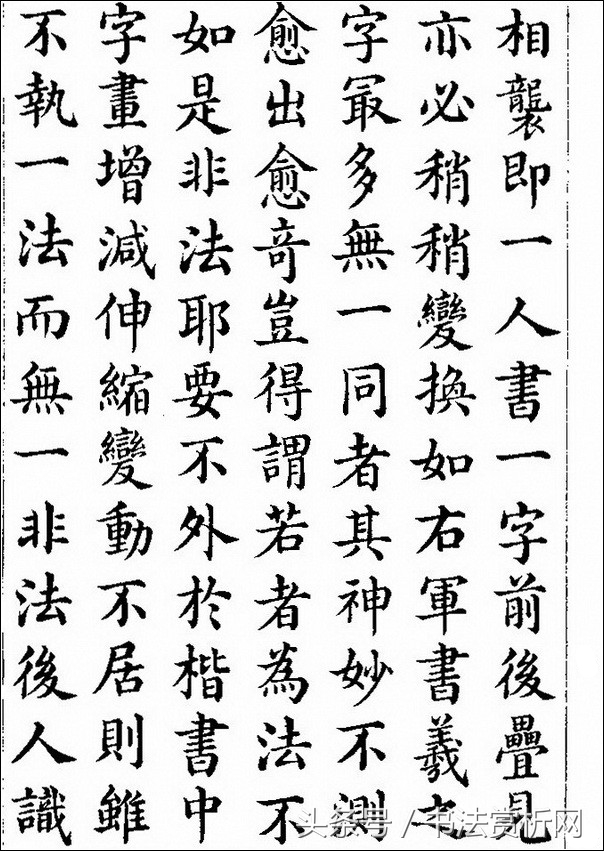 相襲即一人書一字前後疊見
亦必稍稍變換如右軍書羲之
字冣多無一同者其神妙不測
愈出愈竒豈得謂若者為法不
如是非法耶要不外於楷書中
字畫增減伸縮變動不居則雖
不執一法而無一非法後人識
头条号 / 书法赏析网